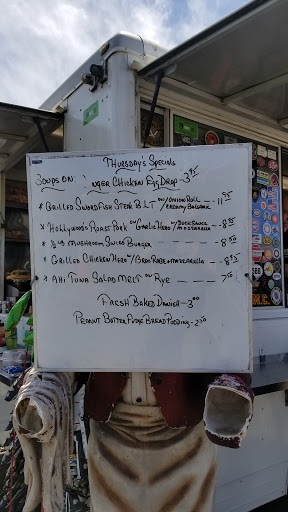 Thursday's Specials
Soups On: Ginger Chicken Egg Drop - 3.95
* Grilled Swordfish Steak BLT on/Onion Roll w/Creamy Balsamic --- 11.95
* Hollywoods Roast Pork on Garlic Hero w/Duck Sauce + Mozzarella --- 8.95
* 1/2 lb Mushroom Swiss Burger --- 8.50
* Grilled Chicken Hero w/Broc Rabe + Mozzarella --- 8.95
* Ahi Tuna Salad Melt on Rye --- 7.50
Fresh Baked Danish - 3.00
Peanut Butter Fudge Bread Pudding - 2.50